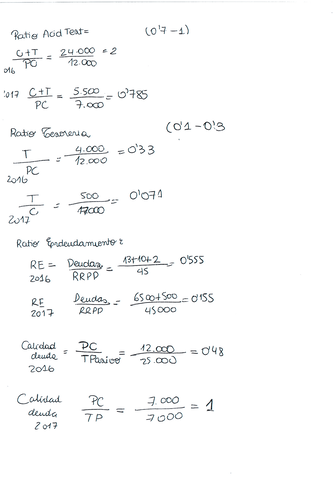 Ratio Acid Test= (0'7-1)
C+T/PC = 24.000/12.000 = 2
2016
2017 C+T/PC = 5.500/7.000 = 0'785
Ratio Tesorería (0'1-0'3
T/PC = 4.000/12.000 = 0'33
2016
T/C = 500/ = 0'071
2017
Ratio Endeudamiento:
RE = Deudas/RRPP = 13+10+2/45 = 0'555
2016
RE Deudas/RRPP = 6500+500/45000 = 0'155
2017
Calidad deuda 2016 = PC/TPasivo = 12.000/25.000 = 0'48
Calidad deuda 2017 PC/TP = 7.000/7000 = 1